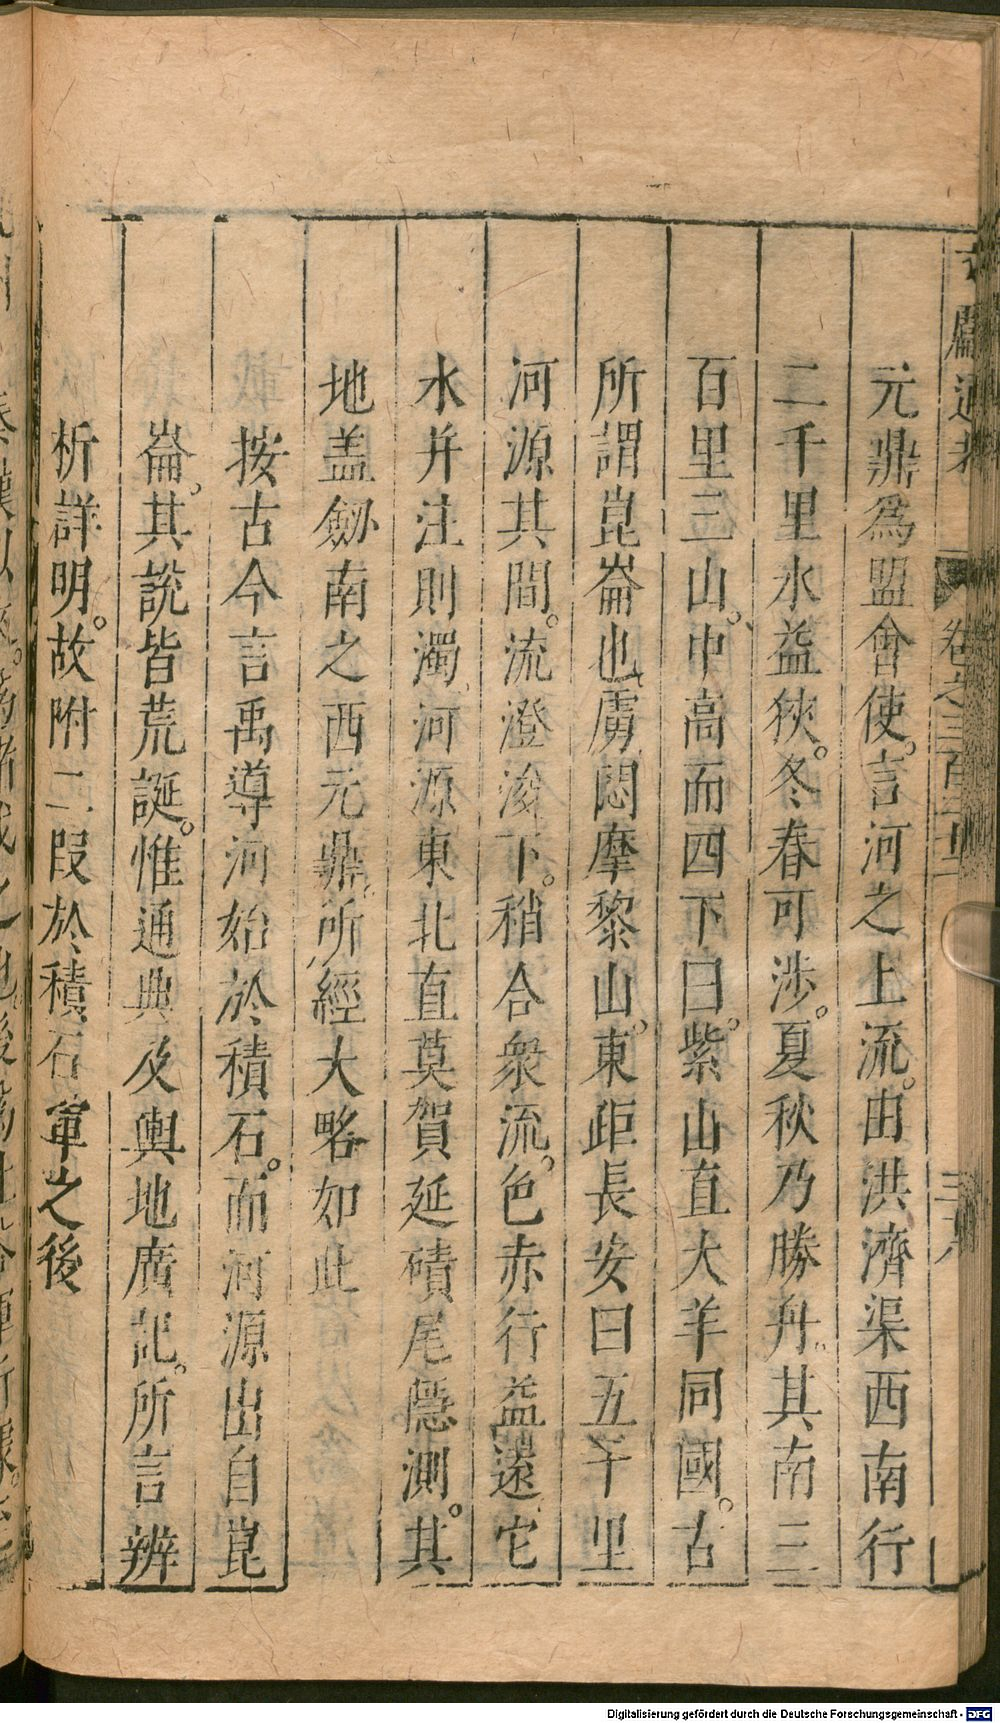 元鼎爲盟會使。言河之上流。由洪濟渠西南行
二千里水益狹。冬春可涉。夏秋乃勝舟。其南三
百里三山。中高而四下曰。紫山直大羊同國。古
所謂崑崙也虜悶摩黎山。東距長安曰五千里
河源其間。流澄浚下。稍合衆流。色赤行益遠它
水并注則濁河源東北直莫賀延磧尾隱測。其
地盖劒南之西元鼎。所經大略如此
按古今言禹導河始於積石。而河源出自崑
崙。其說皆荒誕。惟通典及輿地廣記。所言辨
析詳明。故附二段於積石軍之後
Digitalisierung gefördert durch die Deutsche Forschungsgemeinschaft - DFG